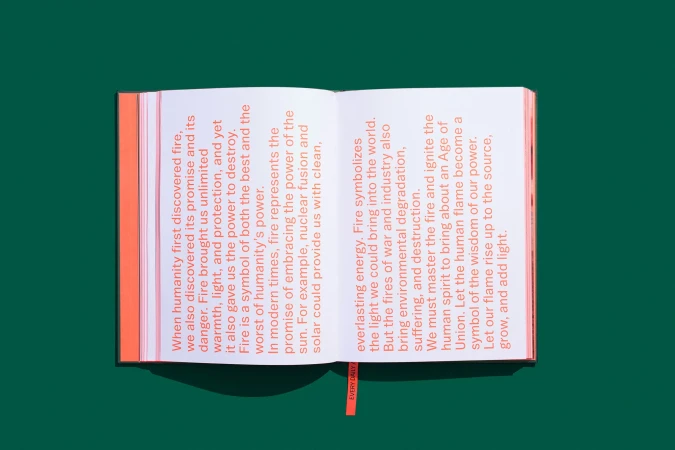 When humanity first discovered fire,
we also discovered its promise and its
danger. Fire brought us unlimited
warmth, light, and protection, and yet
it also gave us the power to destroy.
Fire is a symbol of both the best and the
worst of humanity's power.
In modern times, fire represents the
promise of embracing the power of the
sun. For example, nuclear fusion and
solar could provide us with clean,
everlasting energy. Fire symbolizes
the light we could bring into the world.
But the fires of war and industry also
bring environmental degradation,
suffering, and destruction.
We must master the fire and ignite the
human spirit to bring about an Age of
Union. Let the human flame become a
symbol of the wisdom of our power.
Let our flame rise up to the source,
grow, and add light.